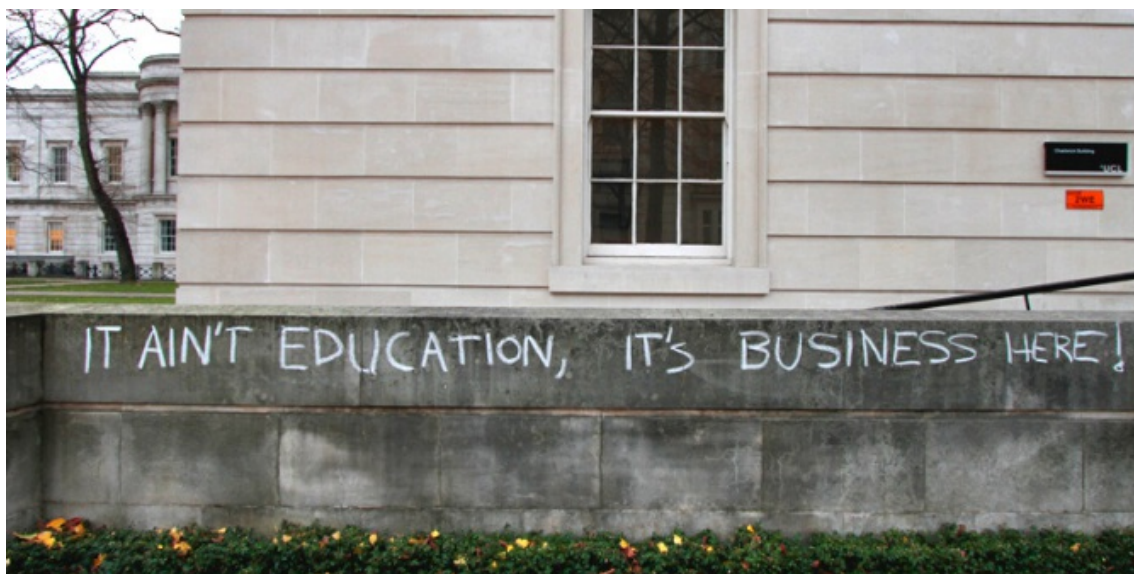 Chadwick Building
UCL
2WE
IT AIN'T EDUCATION, IT'S BUSINESS HERE!